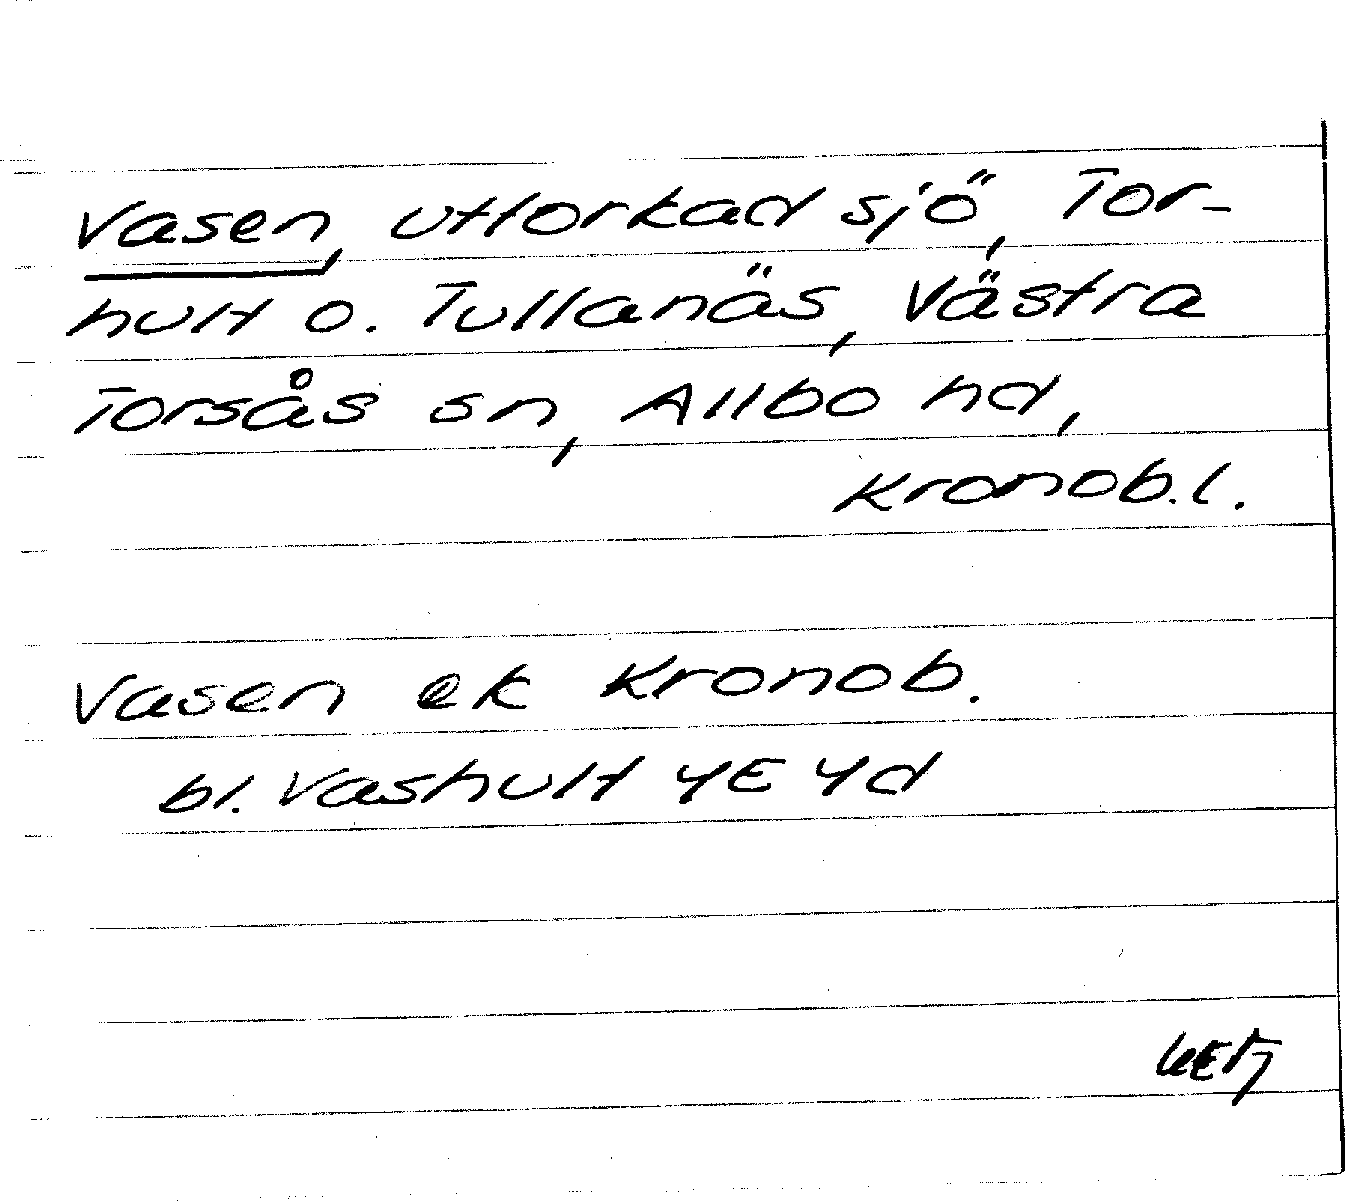 Vasen, uttorkad sjö, Tor-
hult o. Tullanäs, Västra
Torsås sn, Allbo hd,
Kronob.l.
Vasen ek Kronob.
bl. Vashult 4E 4d